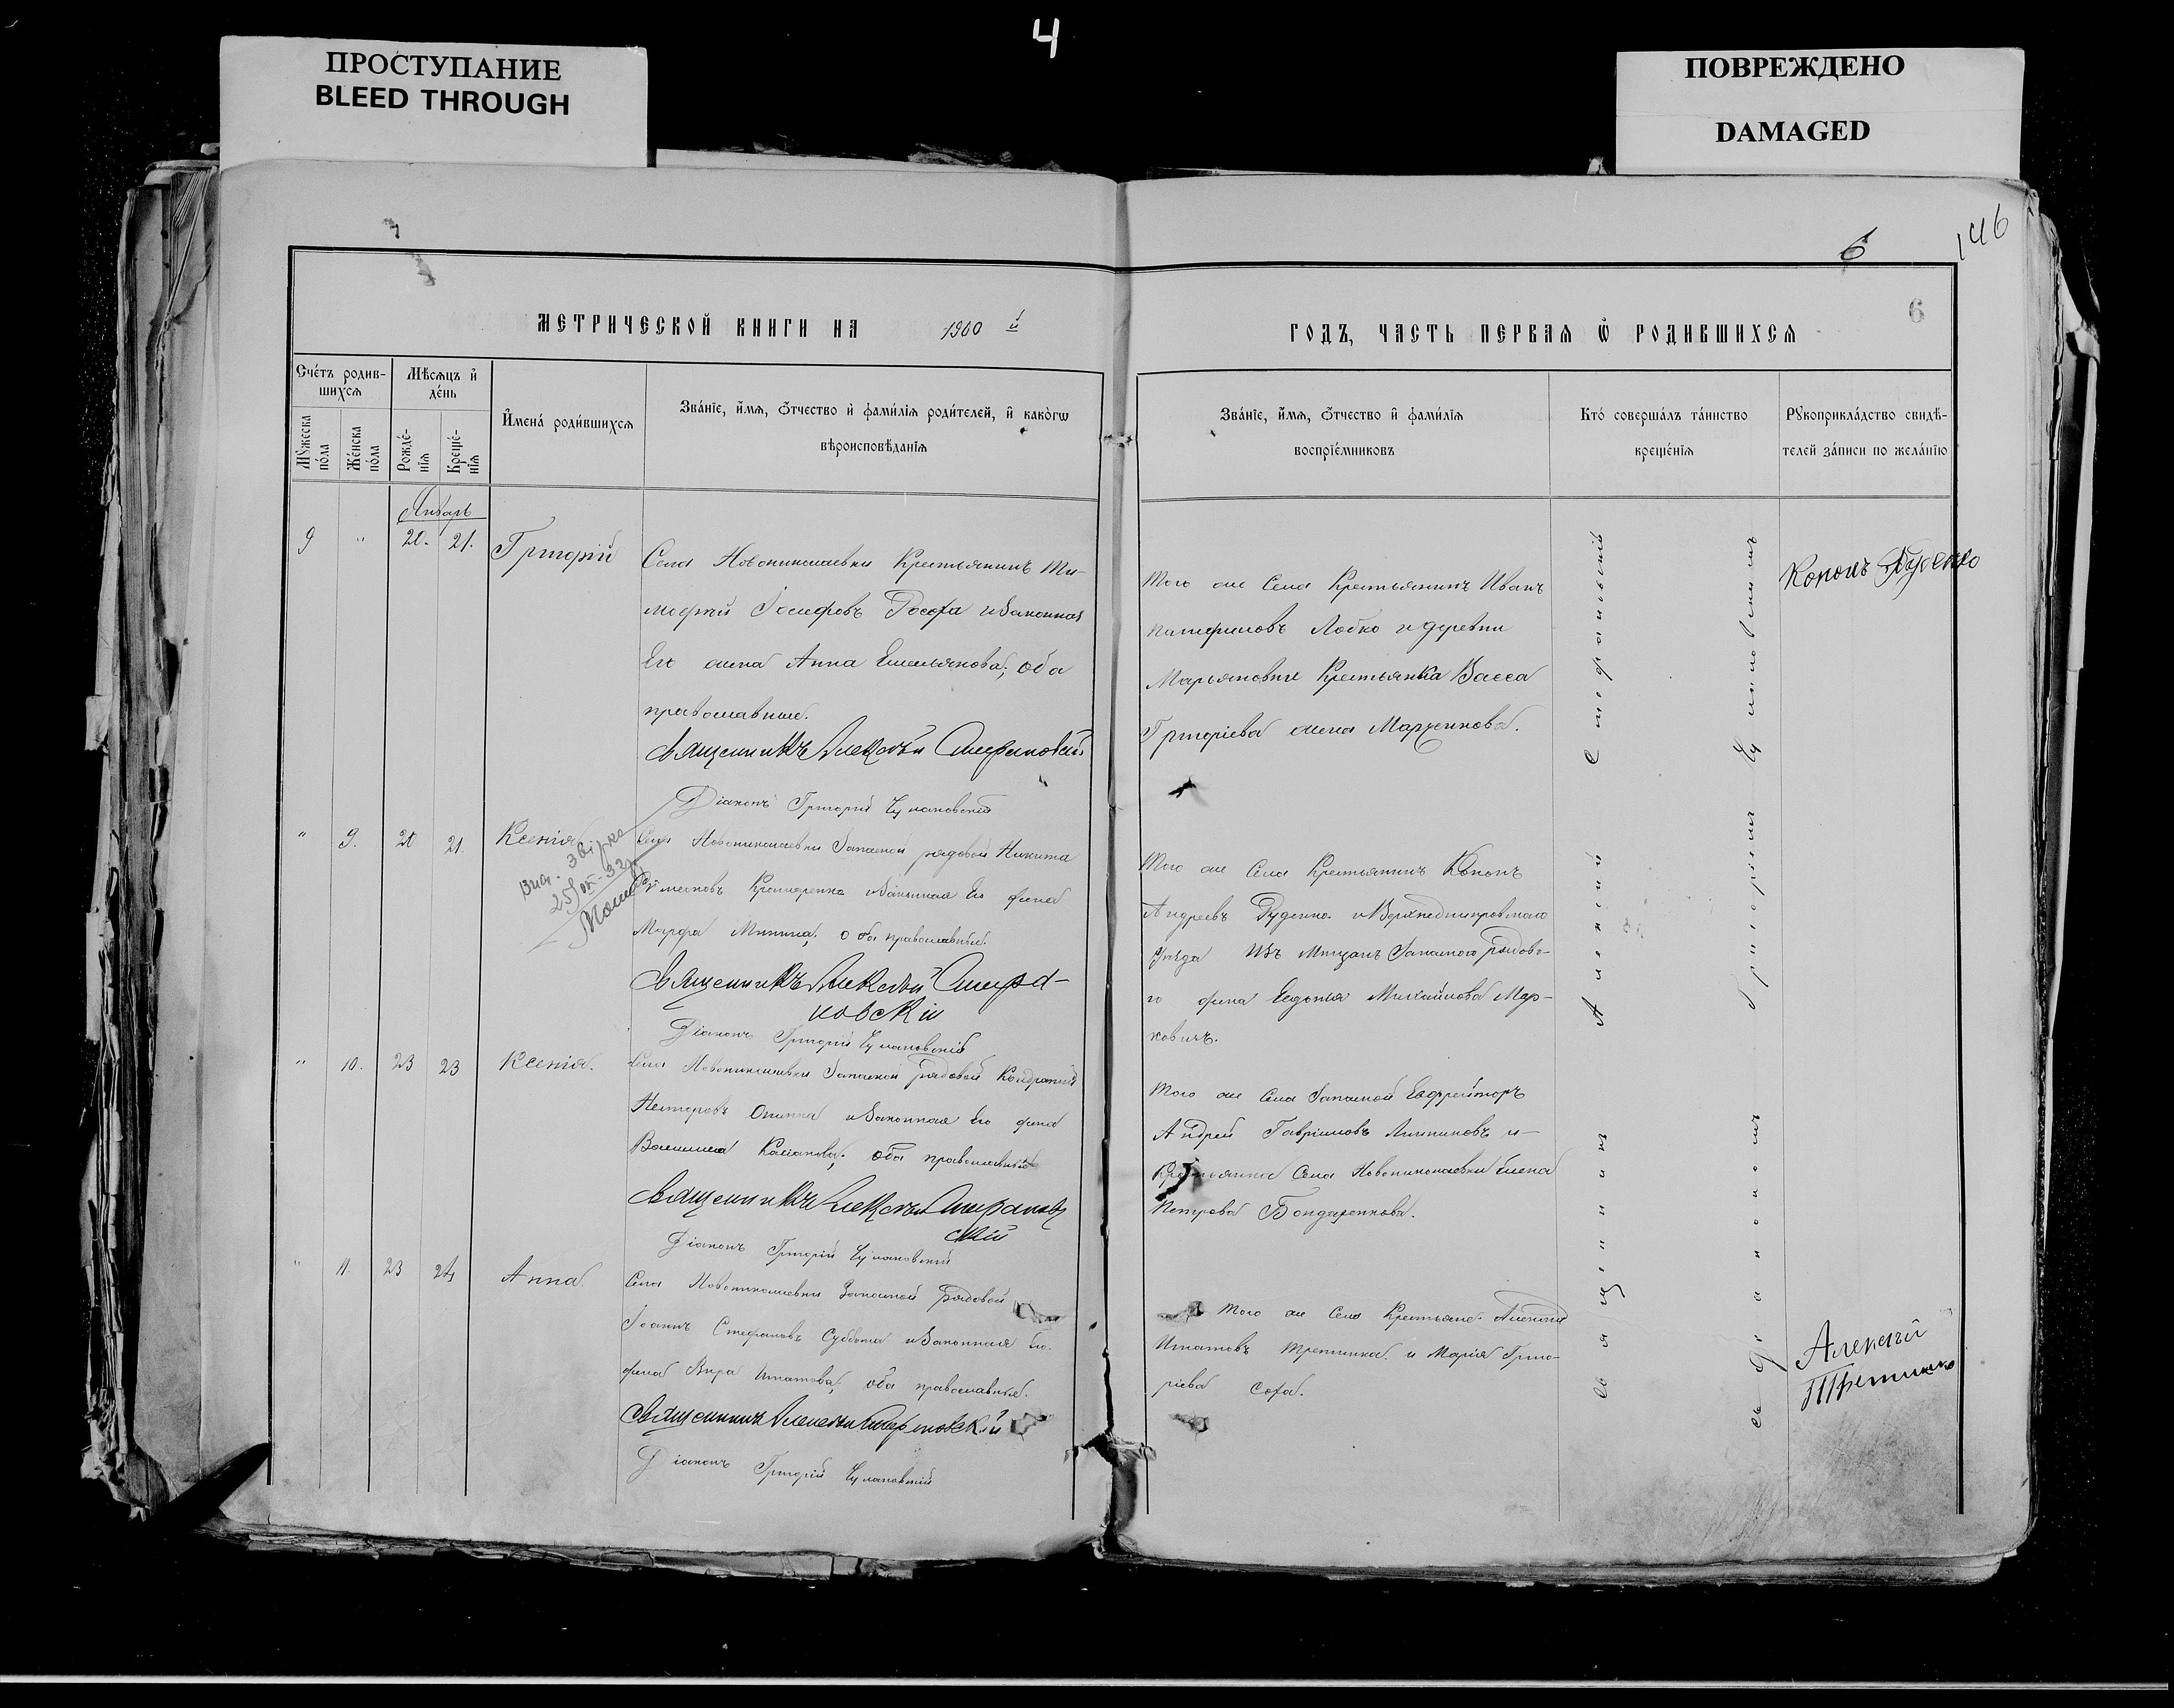 4
ПРОСТУПАНИЕ
BLEED THROUGH
ПОВРЕЖДЕНО
DAMAGED
146
6
6
МЕТРИЧЕСКОЙ КНИГИ НА 1900 й
ГОДЪ, ЧАСТЬ ПЕРВАЯ Ѿ РОДИВШИХСЯ
Счетъ родив-
шихся
Мѣсяцъ и
день
Мужеска
пола
Женска
пола
Рожде-
нія
Креще-
нія
Имена родившихся
Званіе, имя, отчество и фамилія родителей, и какогω
вѣроисповѣданія
Званіе, имя, отчество и фамилія
воспріемниковъ
Кто совершалъ таинство
крещенія
Рукоприкладство свидѣ-
телей записи по желанію
Январь
9 " 20. 21. Григорій
Села Новониколаевки Крестьянинъ Ти-
мофей Іосифовъ и законная
Его жена Анна Емельянова; оба
православные.
Священникъ Алексѣй Стефановскій
Діаконъ Григорій Чулановскій
Того же Села Крестьянинъ Иванъ
Лобко и деревни
Марьяновки Крестьянка Васса
Григоріева жена Марченкова.
Кононъ Руденко
" 9. 20 21. Ксенія
Села Новониколаевки Запасной рядовой Никита
и законная Его жена
Марфа Минина; оба православные.
Священникъ Алексѣй Стефа-
новскій
Діаконъ Григорій Чулановскій
Того же Села Крестьянинъ Кононъ
Андреевъ Руденко и Верхнеднѣпровскаго
уѣзда изъ Мещанъ Запасного рядово-
го жена Евдокія Михайлова Мар-
ковичъ.
" 10. 23 23 Ксенія.
Села Новониколаевки Запасной рядовой Кондратій
Несторовъ и законная Его жена
Василиса Касіанова; оба православные
Священникъ Алексѣй Стефанов
скій
Діаконъ Григорій Чулановскій
Того же Села Запасной Ефрейторъ
Андрей Гавріиловъ и
Крестьянка Села Новониколаевки Елена
Петрова Бондаренкова.
" 11. 23 24 Анна.
Села Новониколаевки Запасной рядовой
Іоаннъ Стефановъ Суббота и законная Его
жена Вѣра Игнатова; оба православные.
Священникъ Алексѣй Стефановскій
Діаконъ Григорій Чулановскій
Того же Села Крестьяне Алексѣй
Игнатовъ и Марія Григо-
ріева
Алексѣй
Священникъ Алексій Стефановскій
съ Діакономъ Григоріемъ Чулановскимъ